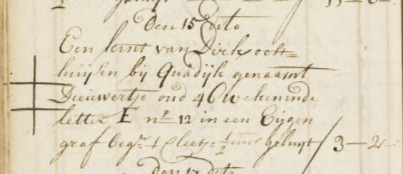 den 15 dito
Een kint van Dirk ooft=
huijsen bij Quadijk genaamt
Dieuwertje oud 4 Weeken in de
letter E no 12 in een Eijgen
graf begr: 1 Cleetje ½ uur geluijt / 3 - 2